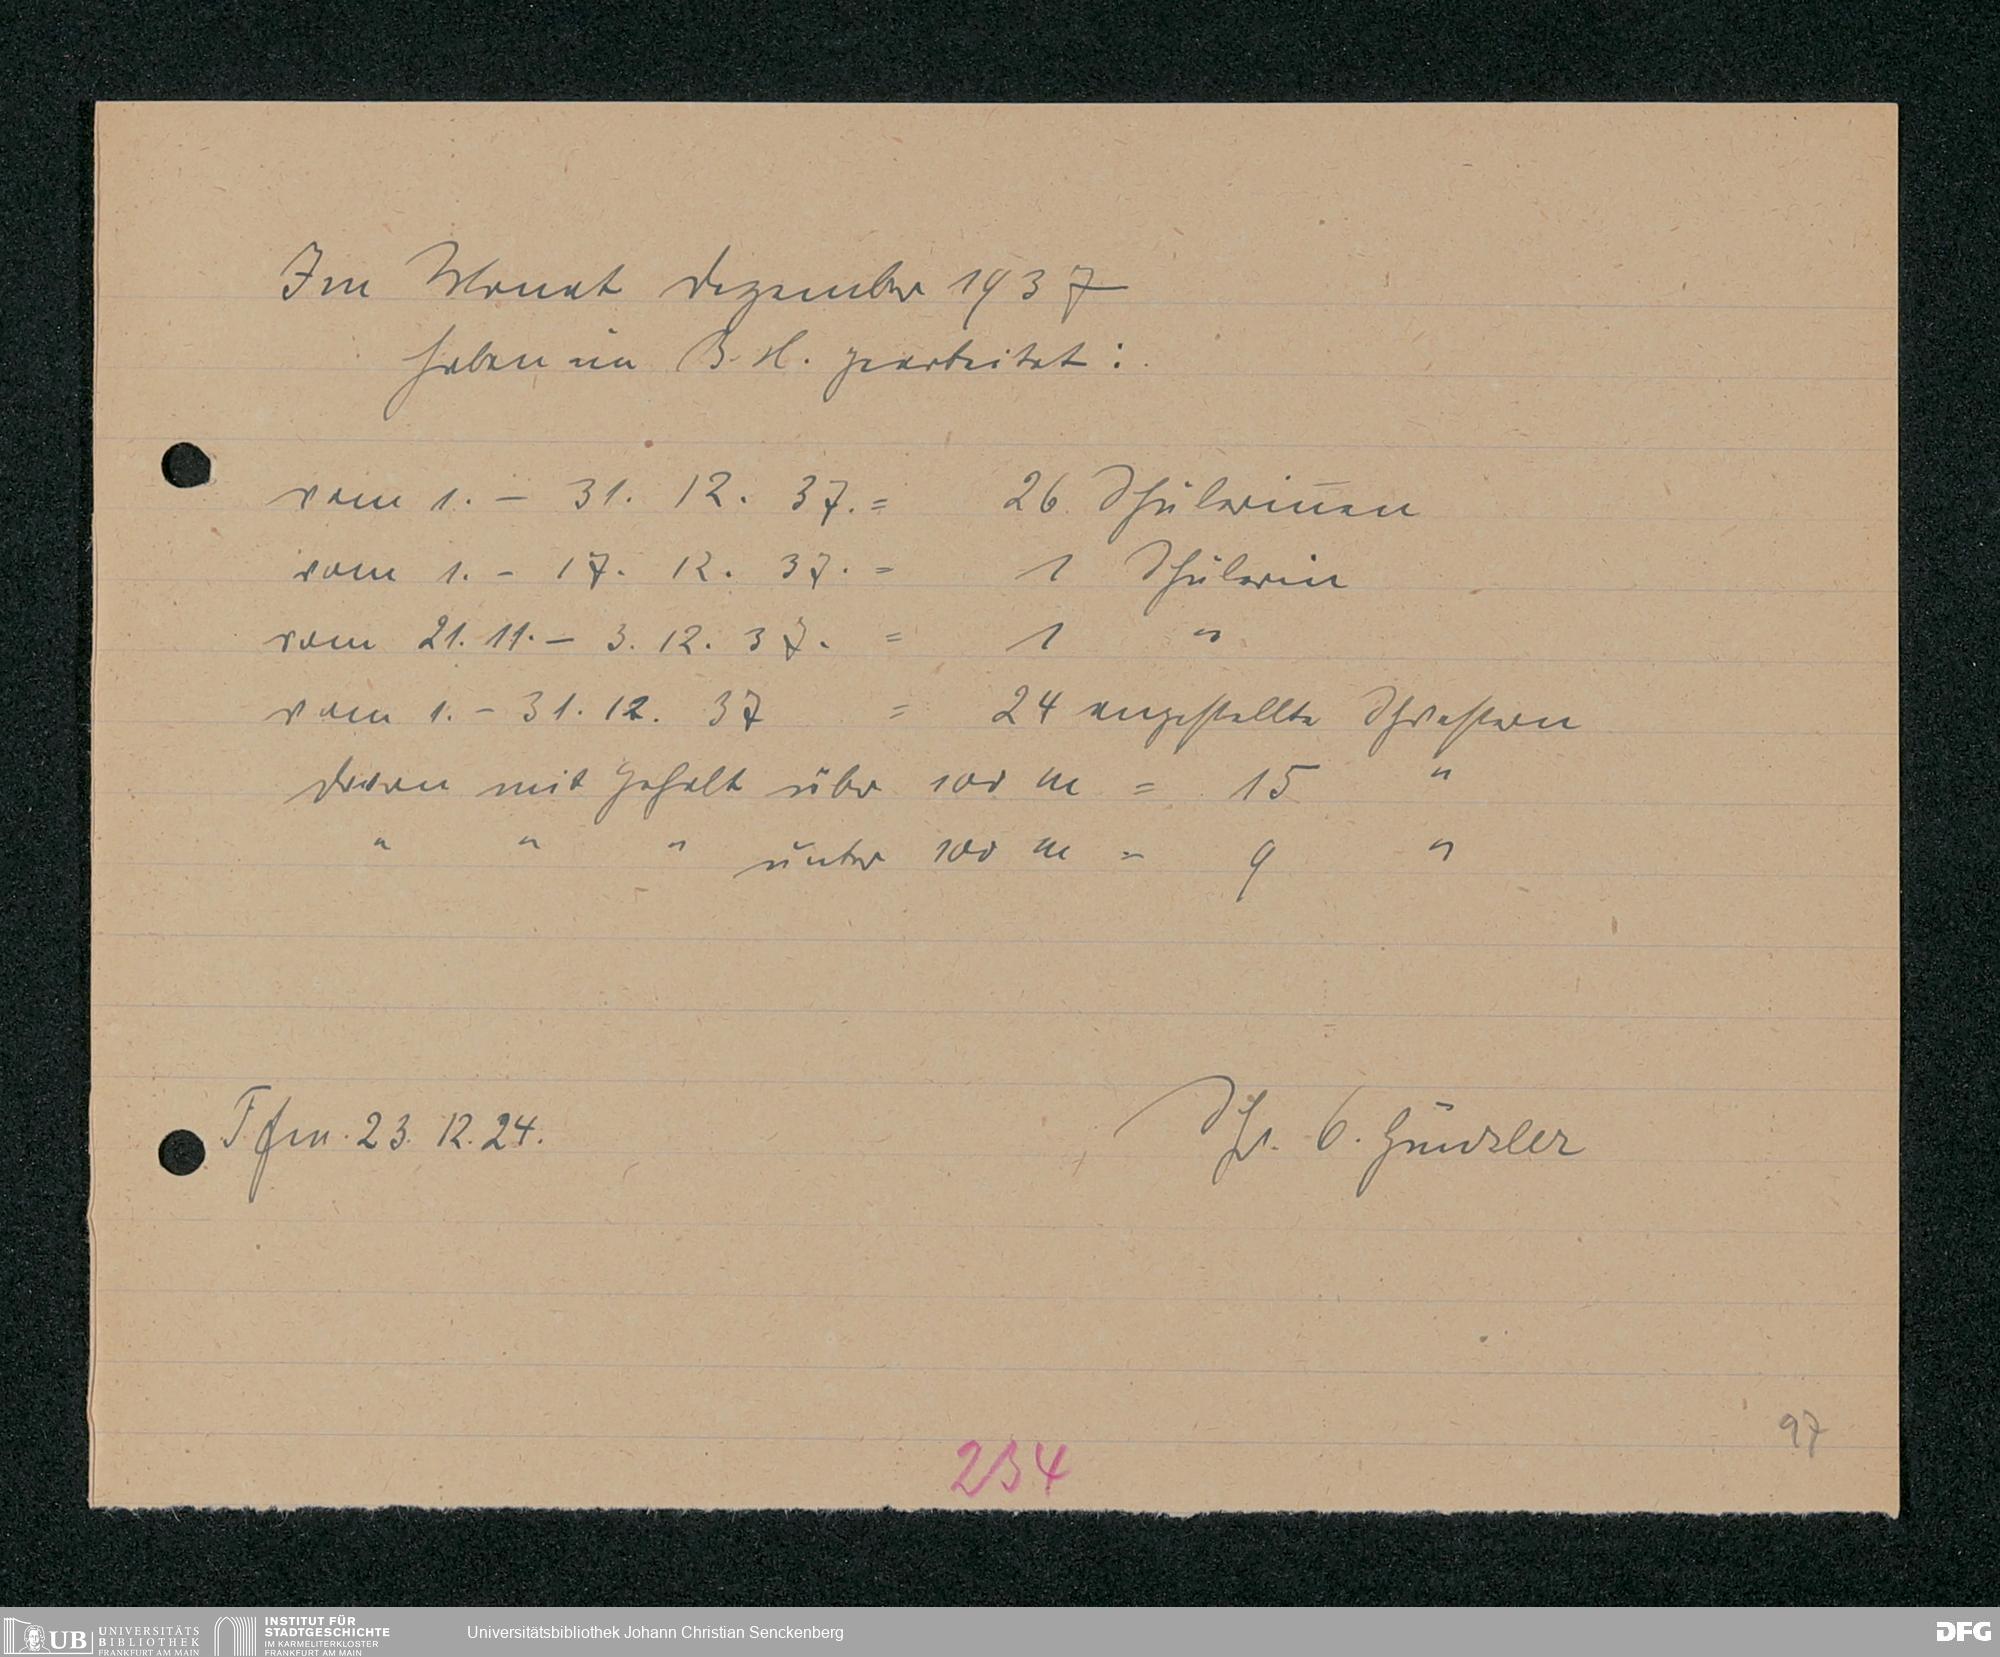 Im Monat Dezember 1937
haben im B. H. gearbeitet:
vom 1. – 31. 12. 37. = 26 Schülerinnen
vom 1. – 17. 12. 37. = 1 Schülerin
vom 21. 11. – 3. 12. 37. = 1 "
vom 1. – 31. 12. 37 = 24 angestellte Schwestern
davon mit Gehalt über 100 M = 15 "
" " " unter 100 M = 9 "
Ffm. 23. 12. 24.
Schw.
234
97
UB UNIVERSITÄTS BIBLIOTHEK FRANKFURT AM MAIN
INSTITUT FÜR STADTGESCHICHTE IM KARMELITERKLOSTER FRANKFURT AM MAIN
Universitätsbibliothek Johann Christian Senckenberg
DFG